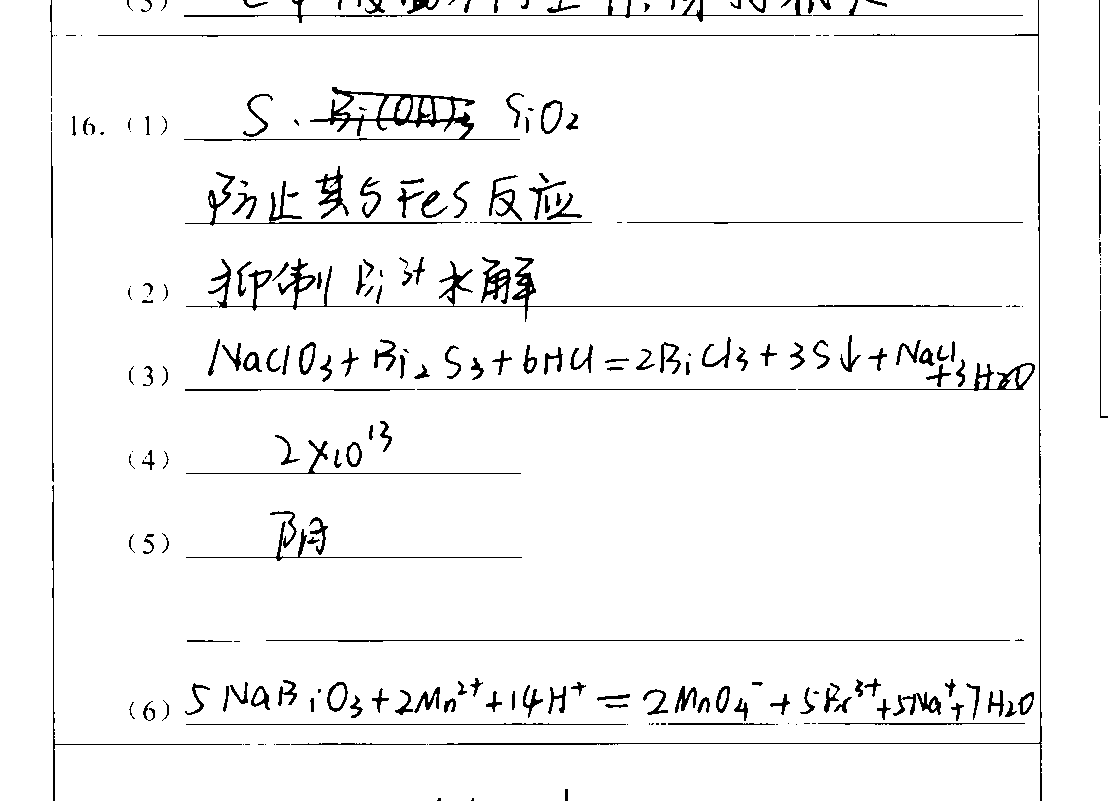 (3)
16. (1) S、SiO₂
防止其与FeS反应
(2) 抑制Bi³⁺水解
(3) NaClO₃+Bi₂S₃+6HCl=2BiCl₃+3S↓+NaCl
+3H₂O
(4) 2×10¹³
(5) 阴
(6) 5NaBiO₃+2Mn²⁺+14H⁺=2MnO₄⁻+5Bi³⁺+5Na⁺+7H₂O